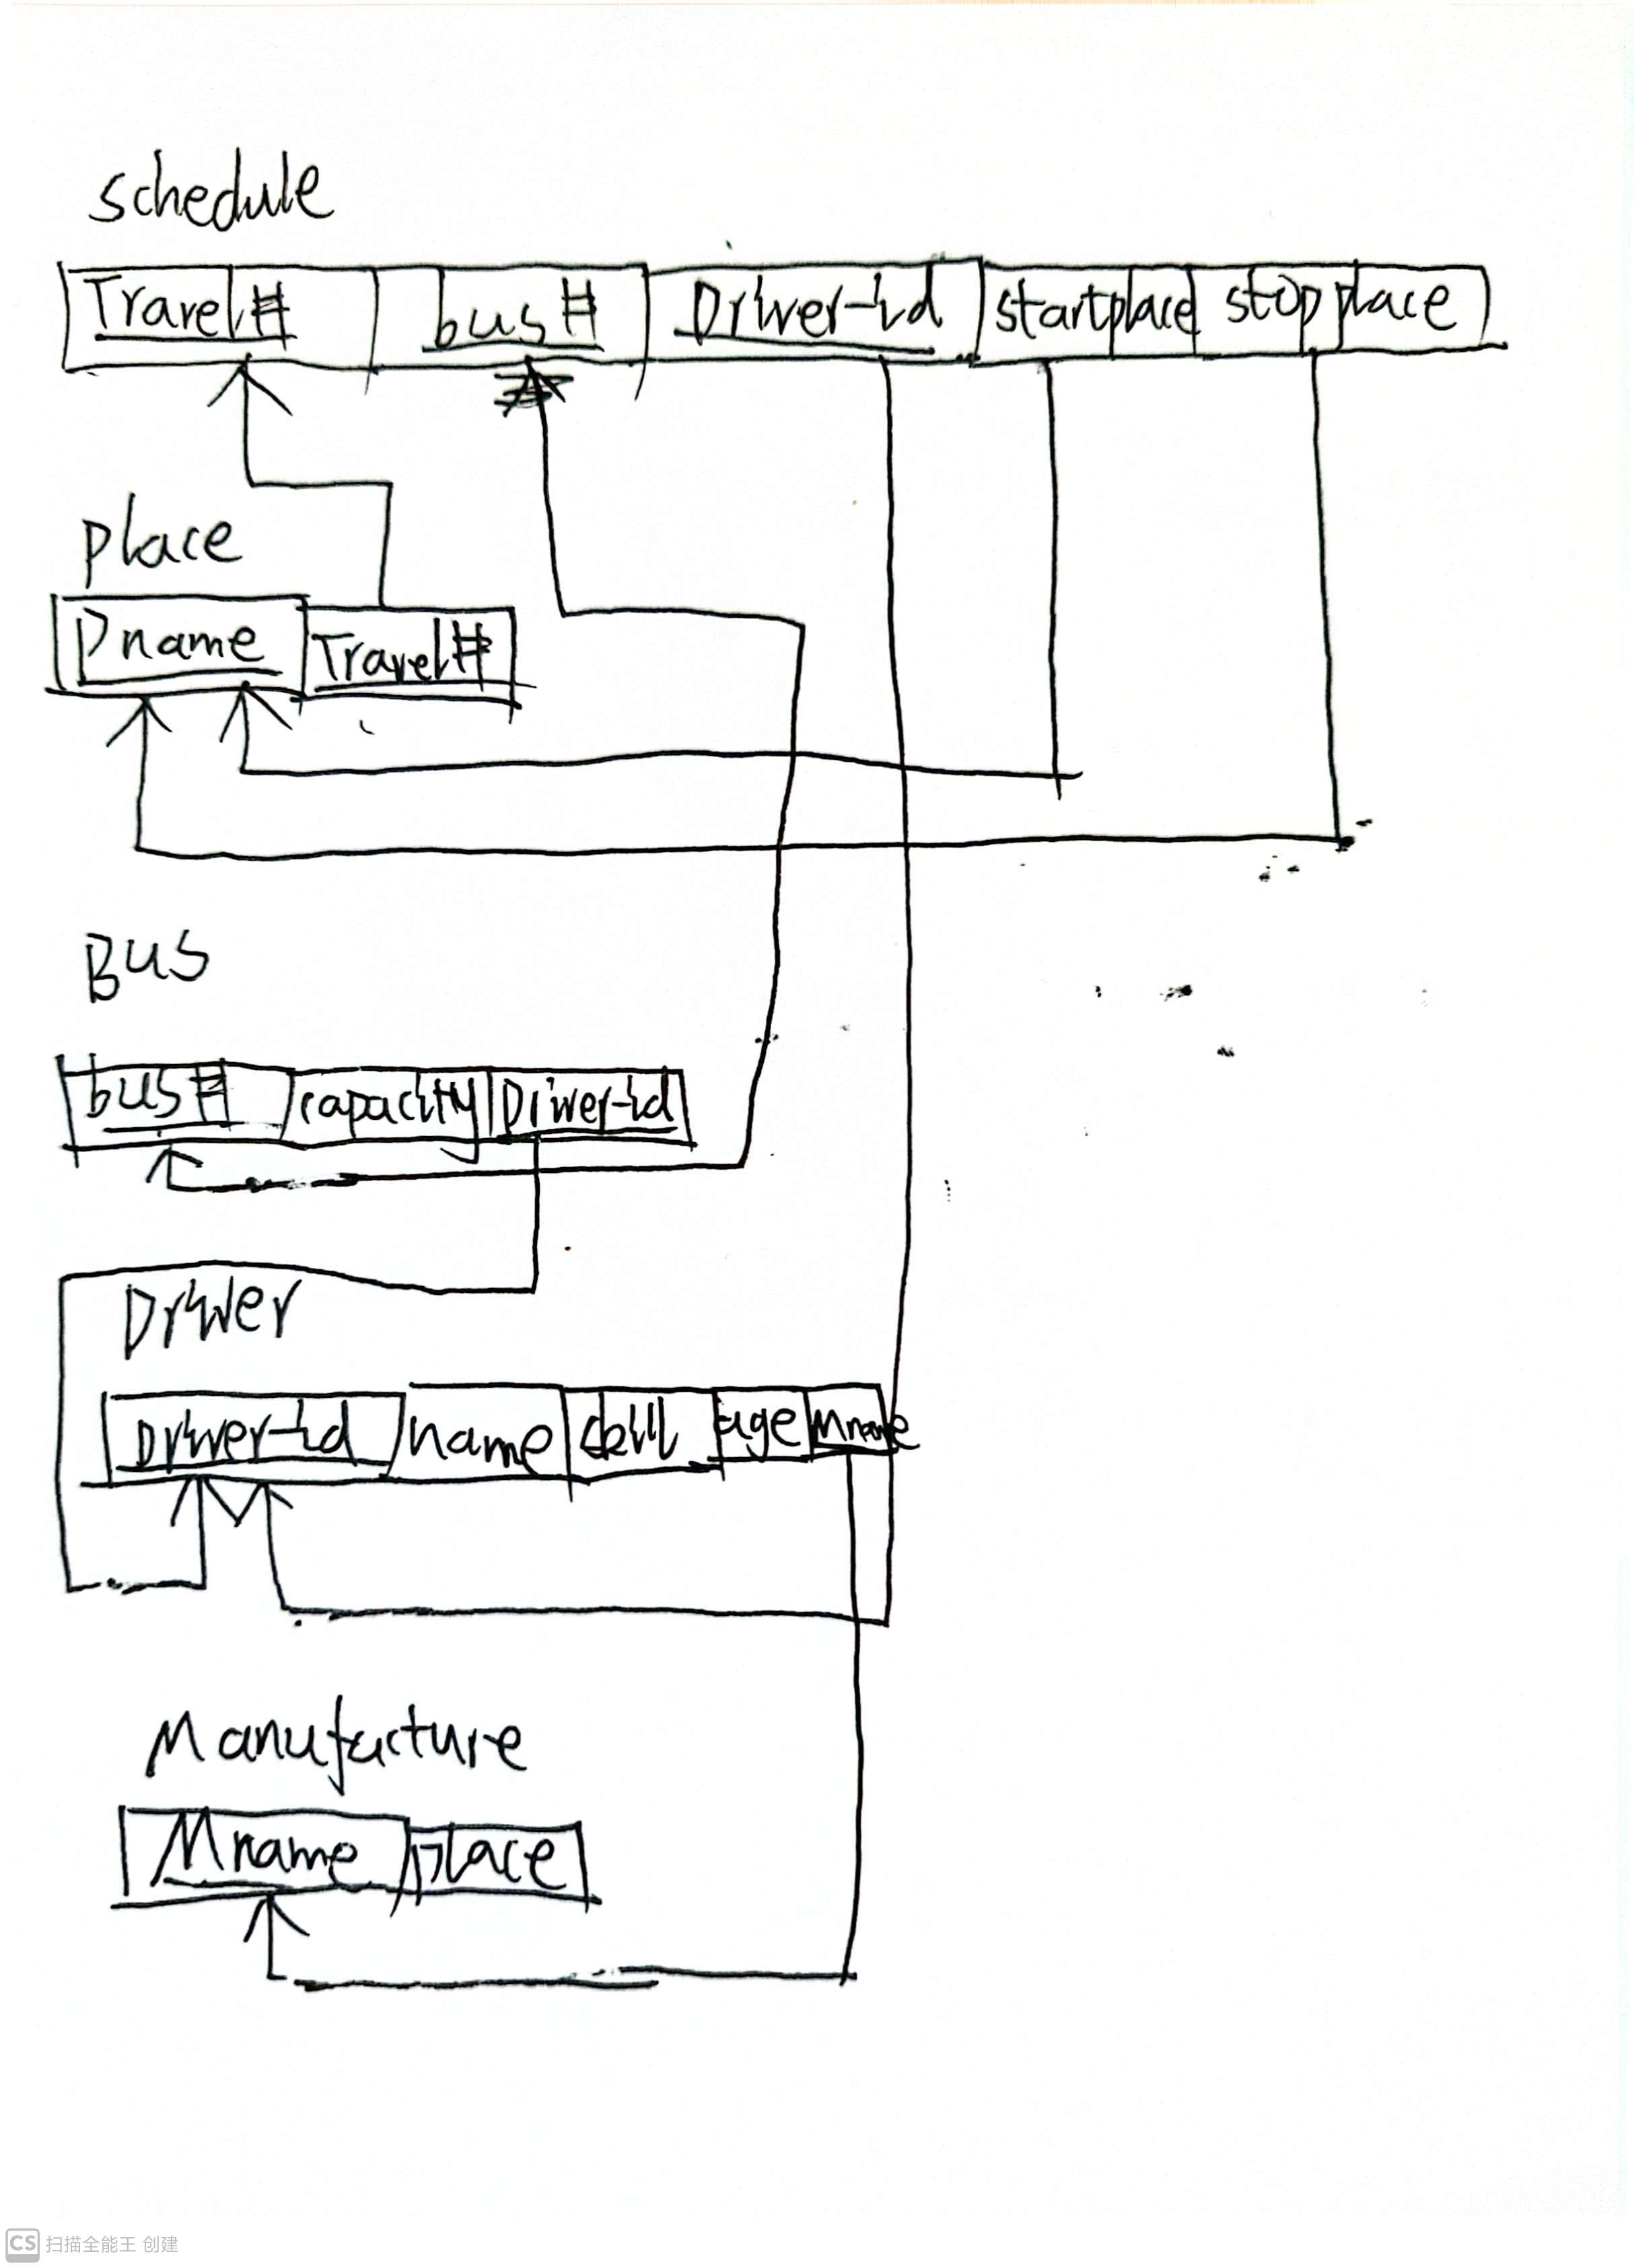 schedule
Travel# bus# Driver-id startplace stop place
place
Pname Travel#
Bus
bus# capacity Driver-id
Driver
Driver-id name age Mname
Manufacture
Mname place
CS 扫描全能王 创建